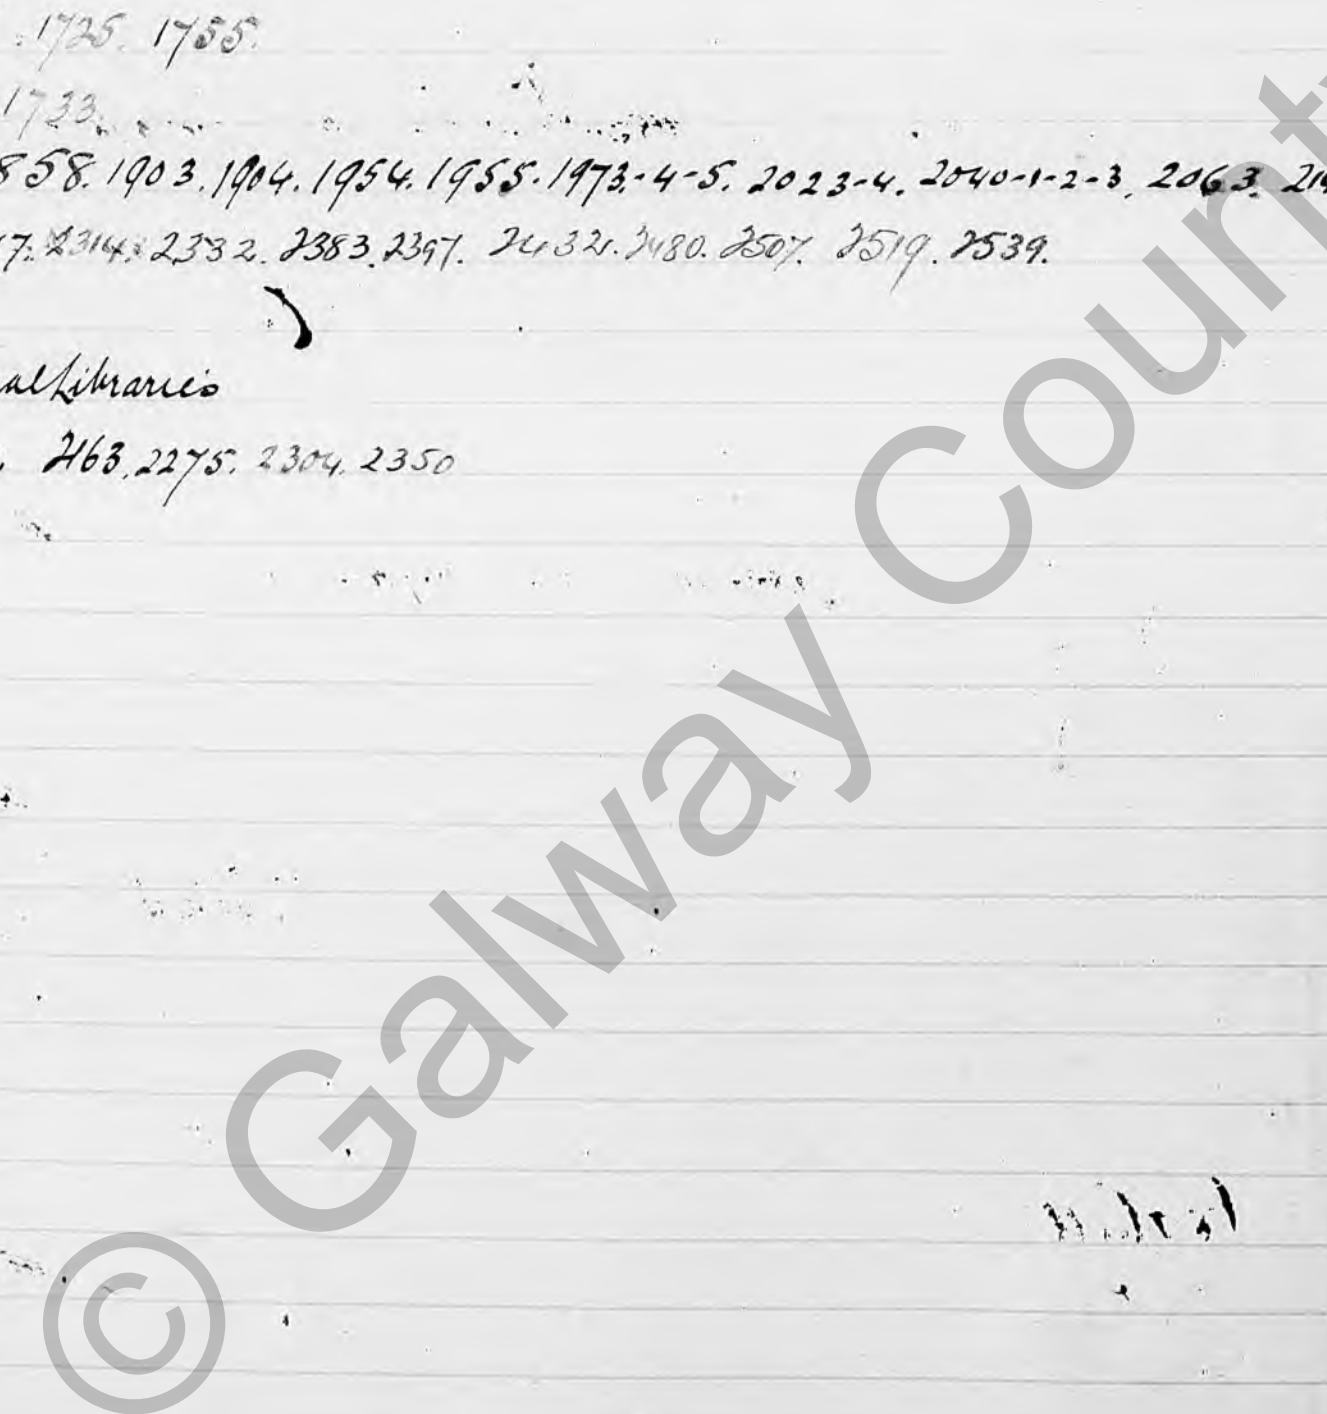 1725. 1755.
1733.
858. 1903. 1904. 1954. 1955. 1973-4-5. 2023-4. 2040-1-2-3. 2063. 214
7. 2314. 2332. 2383. 2397. 2432. 2480. 2507. 2519. 2539.
al Libraries
2163. 2275. 2304. 2350
© Galway County